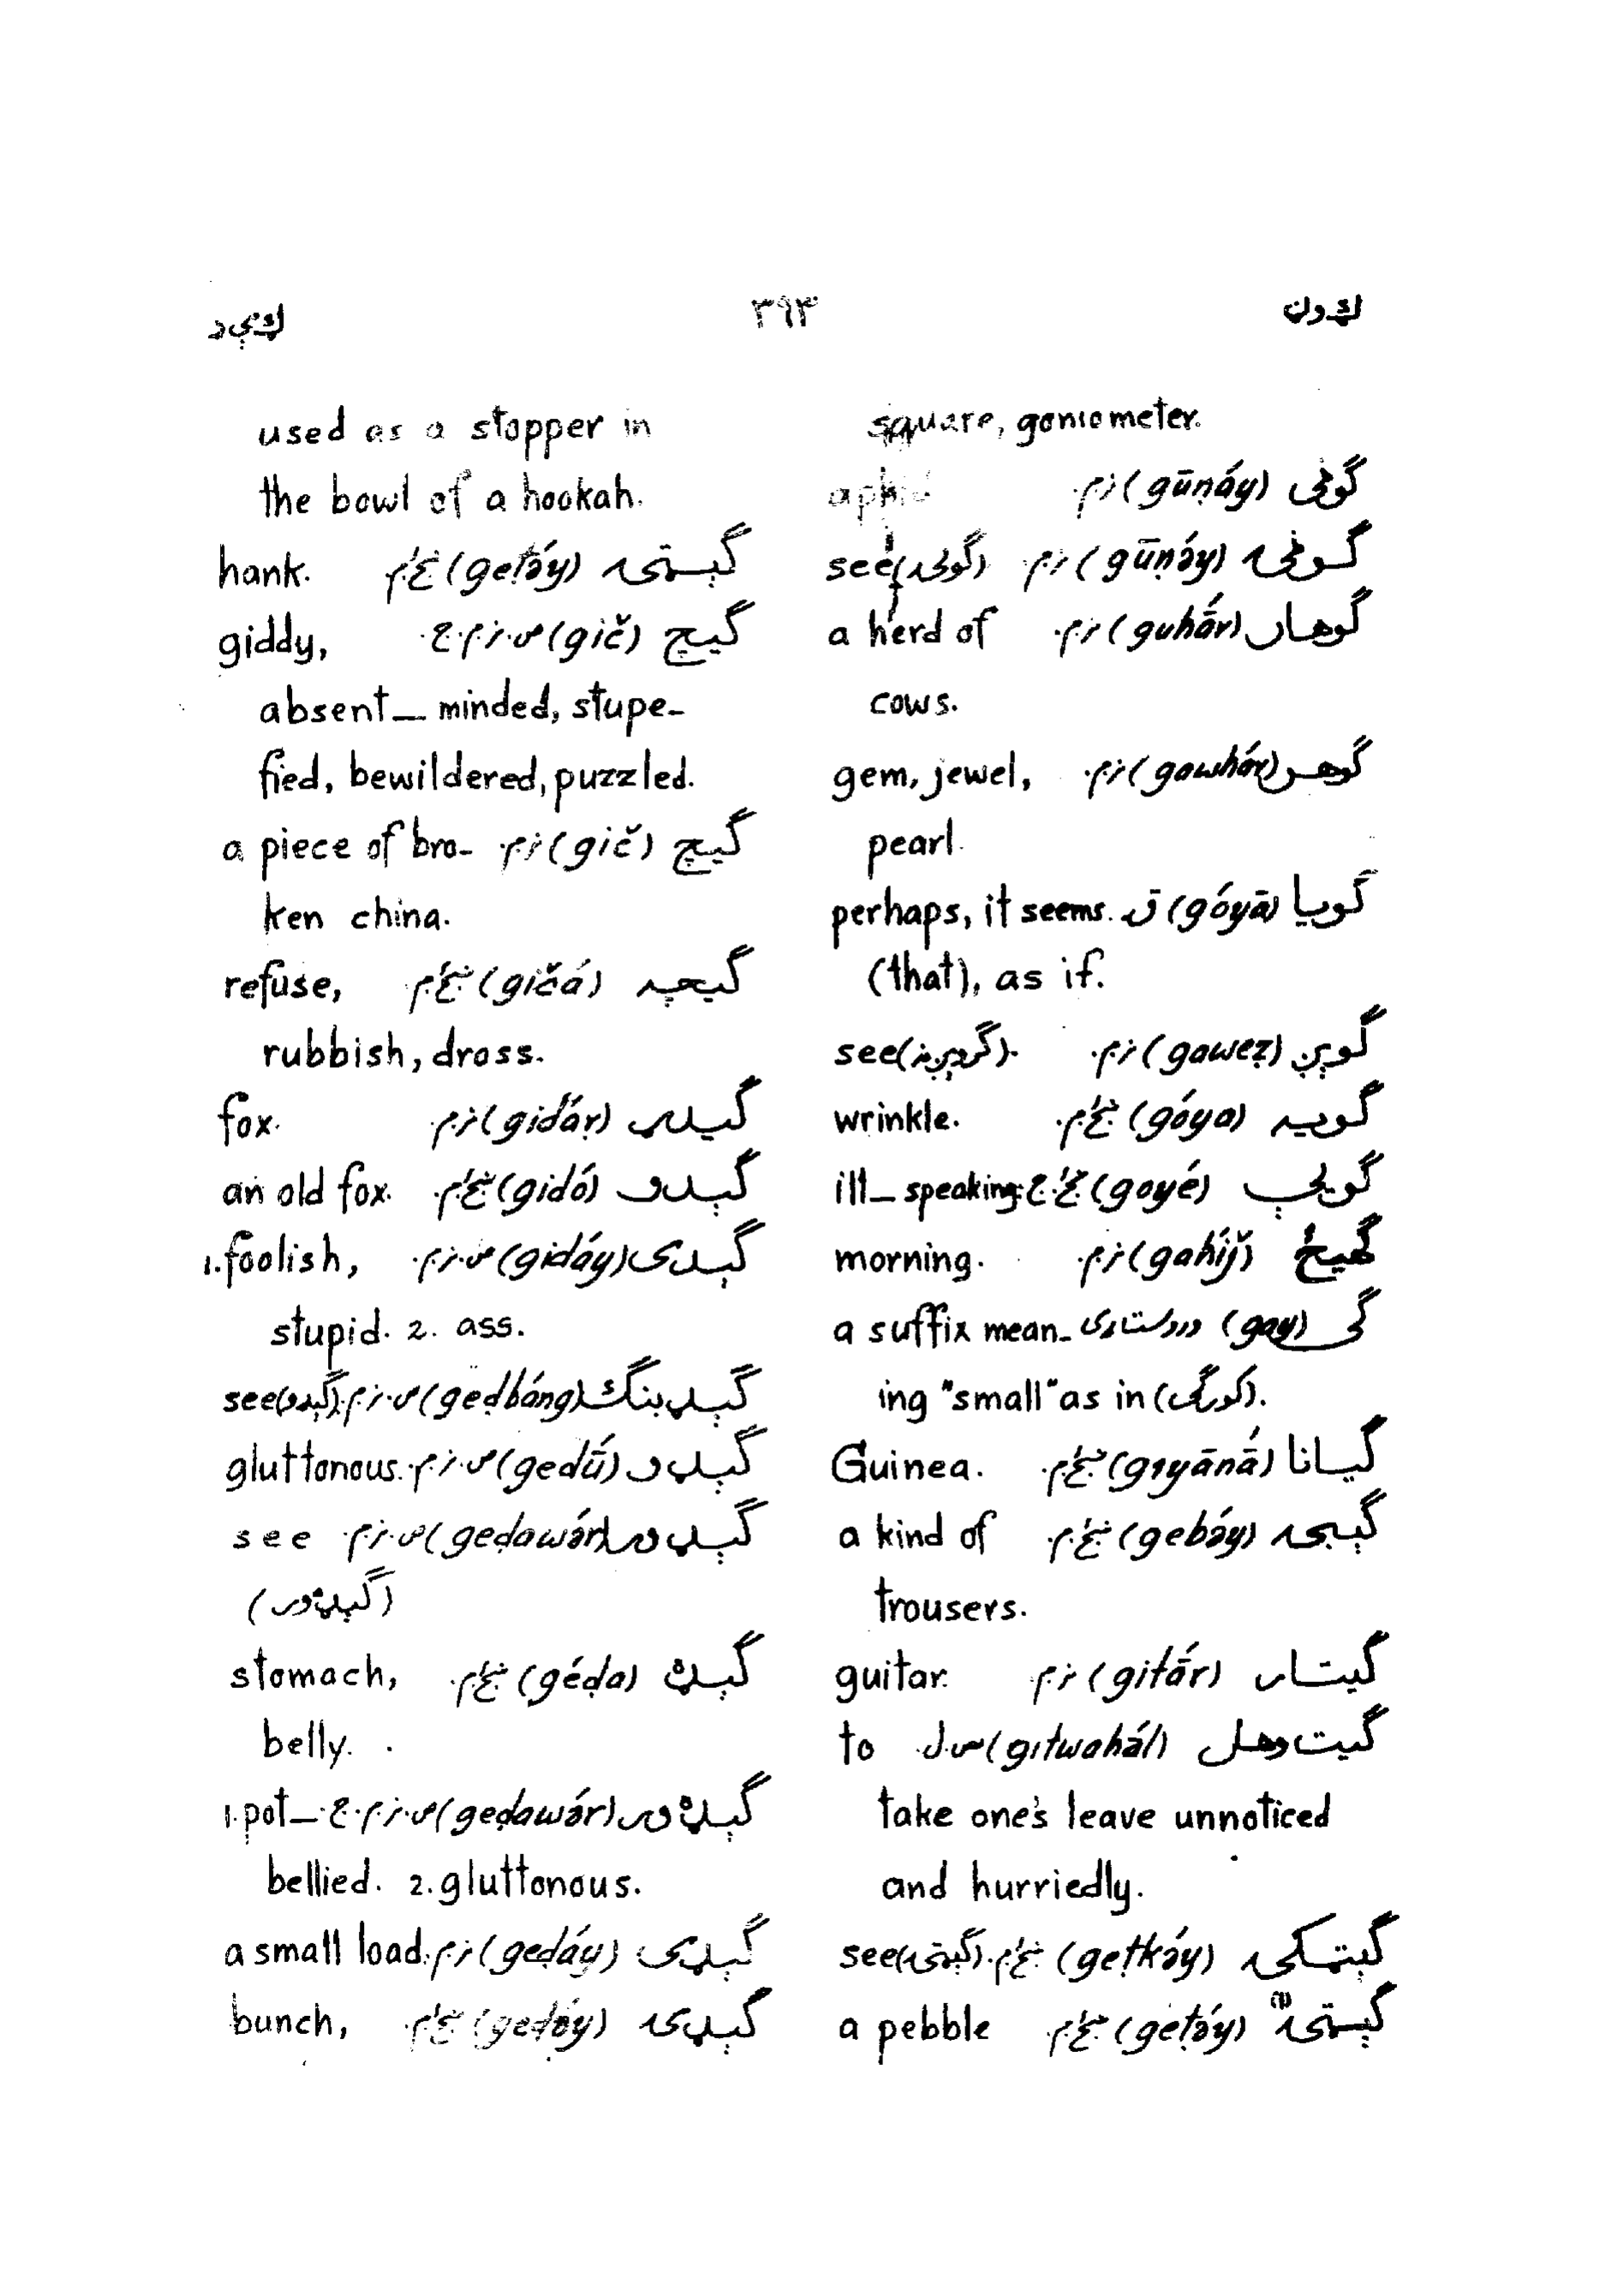 ګ ون
٣٩٣
ګ ېد
square, goniometer.
ګوڼی (gūṇáy) ن.م. aphid
ګوڼۍ (gūṇə́y) ن.م. see
ګوهار (guhā́r) ن.م. a herd of
cows.
ګوهر (gawhár) ن.م. gem, jewel,
pearl.
ګويا (góyā) ق. perhaps, it seems
(that), as if.
ګوېړ (gaweẓ) ن.م. see
ګويه (góya) ښځ.م. wrinkle.
ګويې (goyé) ښځ.ج. ill-speaking.
ګهيځ (gahíǰ) ن.م. morning.
ګی (gay) وروستاړی a suffix mean-
ing "small" as in (کورګی).
ګيانا (gıyānā́) ښځ.م. Guinea.
ګېبۍ (gebə́y) ښځ.م. a kind of
trousers.
ګيتار (gitā́r) ن.م. guitar.
ګيت وهل (gıtwahə́l) ص.ل. to
take one's leave unnoticed
and hurriedly.
ګېټکۍ (geṭkə́y) ښځ.م. see (ګېټۍ).
ګېټۍ (١) (geṭə́y) ښځ.م. a pebble
used as a stopper in
the bowl of a hookah.
ګېټۍ (geṭə́y) ښځ.م. hank.
ګيچ (gič) ص.ن.م.ج. giddy,
absent-minded, stupe-
fied, bewildered, puzzled.
ګيچ (gič) ن.م. a piece of bro-
ken china.
ګيچه (gičá) ښځ.م. refuse,
rubbish, dross.
ګيدړ (gidáṛ) ن.م. fox.
ګيدو (gidó) ښځ.م. an old fox.
ګېدی (gidáy) ص.ن.م. 1. foolish,
stupid. 2. ass.
ګېډبنګ (geḍbáng) ص.ن.م. see (ګېډو).
ګېډو (geḍū́) ص.ن.م. gluttonous.
ګېډور (geḍawár) ص.ن.م. see
(ګېډه ور)
ګېډه (géḍa) ښځ.م. stomach,
belly.
ګېډه ور (geḍawár) ص.ن.م.ج. 1. pot-
bellied. 2. gluttonous.
ګېډی (geḍáy) ن.م. a small load.
ګېډۍ (geḍə́y) ښځ.م. bunch,